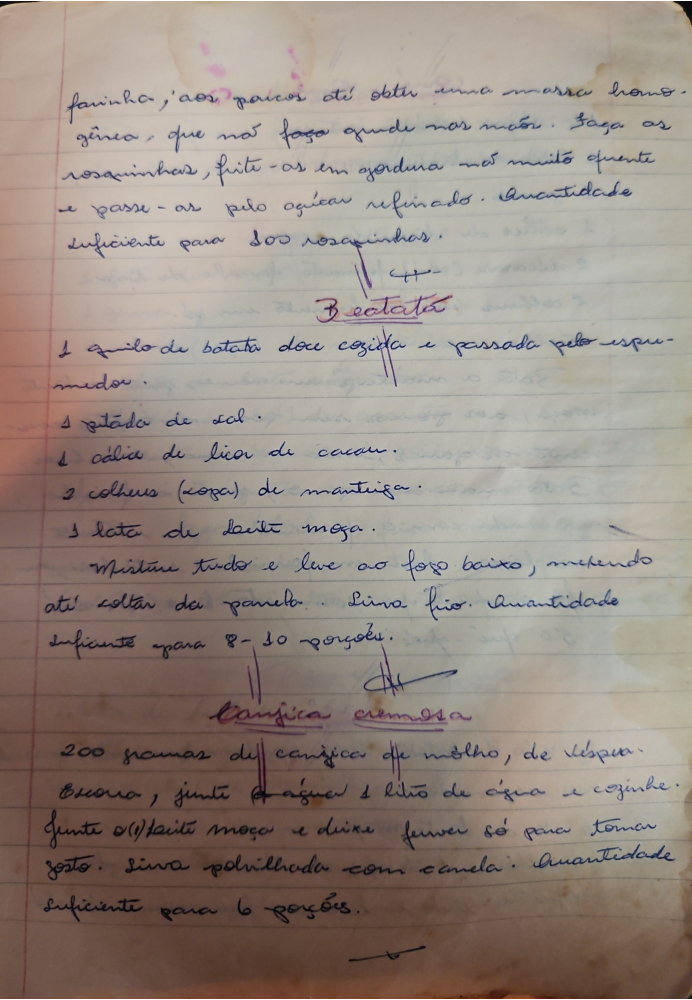 farinha, aos poucos até obter uma massa homo-
gênea, que não faça grude nas mãos. Faça as
rosquinhas, frite-as em gordura não muito quente
e passe-as pelo açúcar refinado. Quantidade
suficiente para 100 rosquinhas.
Beatatá
1 quilo de batata doce cozida e passada pelo espre-
medor.
1 pitada de sal.
1 cálice de licor de cacau.
2 colheres (sopa) de manteiga.
1 lata de Leite moça.
Misture tudo e leve ao fogo baixo, mexendo
até soltar da panela. Sirva frio. Quantidade
suficiente para 8-10 porções.
Canjica cremosa
200 gramas de canjica de môlho, de véspera.
Escorra, junte a água 1 litro de água e cozinhe.
Junte o(1) Leite moça e deixe ferver só para tomar
gosto. Sirva polvilhada com canela. Quantidade
suficiente para 6 porções.